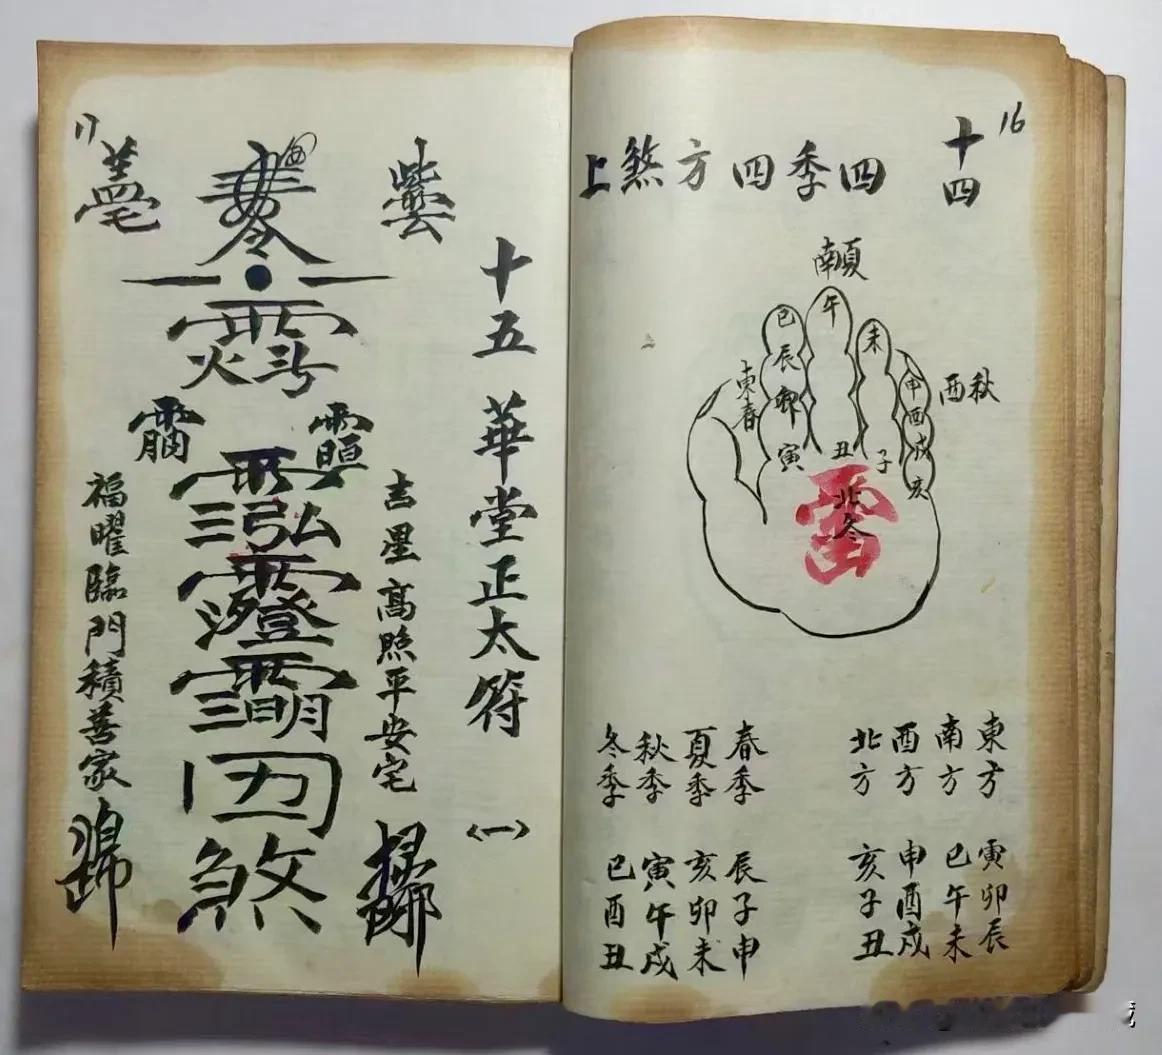 16
十四
四季四方煞上
夏南
午
巳
辰
卯
寅
未
申
酉
戌
亥
子
丑
東春
秋西
雷
北冬
東方 寅卯辰
南方 巳午未
西方 申酉戌
北方 亥子丑
春季 辰子申
夏季 亥卯未
秋季 寅午戌
冬季 巳酉丑
17
十五 華堂正太符 〈一〉
吉星高照平安宅
煞
福曜臨門積善家